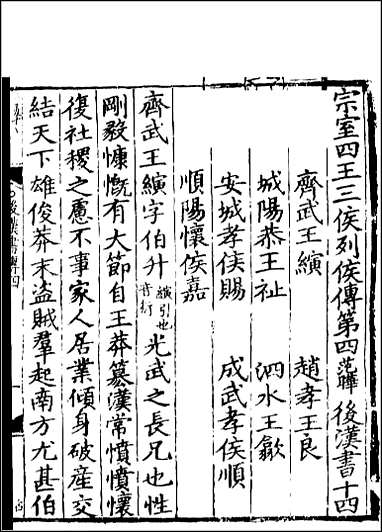 宗室四王三侯列侯傳第四 范曄 後漢書十四
齊武王縯 趙孝王良
城陽恭王祉 泗水王歙
安城孝侯賜 成武孝侯順
順陽懷侯嘉
齊武王縯字伯升 縯引也音衍 光武之長兄也性
剛毅慷慨有大節自王莽篡漢常憤憤懷
復社稷之慮不事家人居業傾身破産交
結天下雄俊莽末盜賊羣起南方尤甚伯